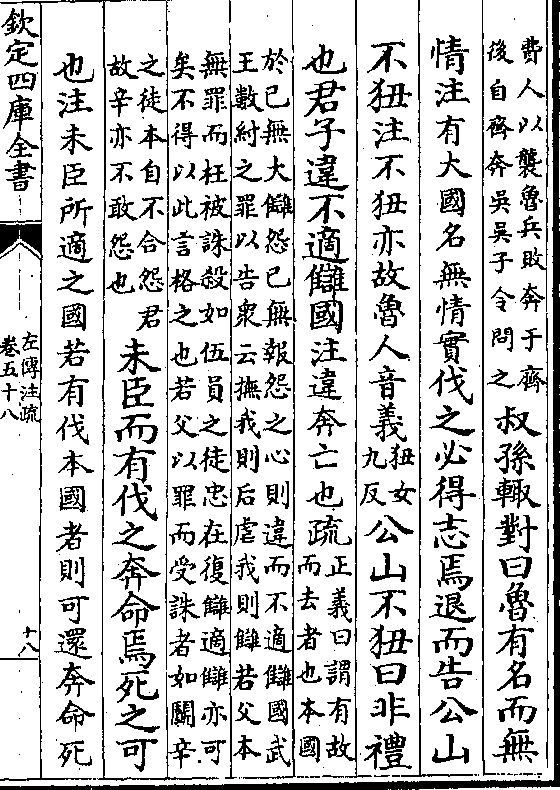 費人以襲魯兵敗奔于齊
後自齊奔吳吳子令問之
叔孫輒對曰魯有名而無
情注有大國名無情實伐之必得志焉退而告公山
不狃注不狃亦故魯人音義
狃女
九反
公山不狃曰非禮
也君子違不適讎國注違奔亡也疏
正義曰謂有故
而去者也本國
於已無大讎怨已無報怨之心則違而不適讎國武
王數紂之罪以告衆云撫我則后虐我則讎若父本
無罪而枉被誅殺如伍員之徒忠在復讎適讎亦可
矣不得以此言格之也若父以罪而受誅者如鬭辛
之徒本自不合怨君
故辛亦不敢怨也
未臣而有伐之奔命焉死之可
也注未臣所適之國若有伐本國者則可還奔命死
欽定四庫全書
左傳注疏
卷五十八
十八